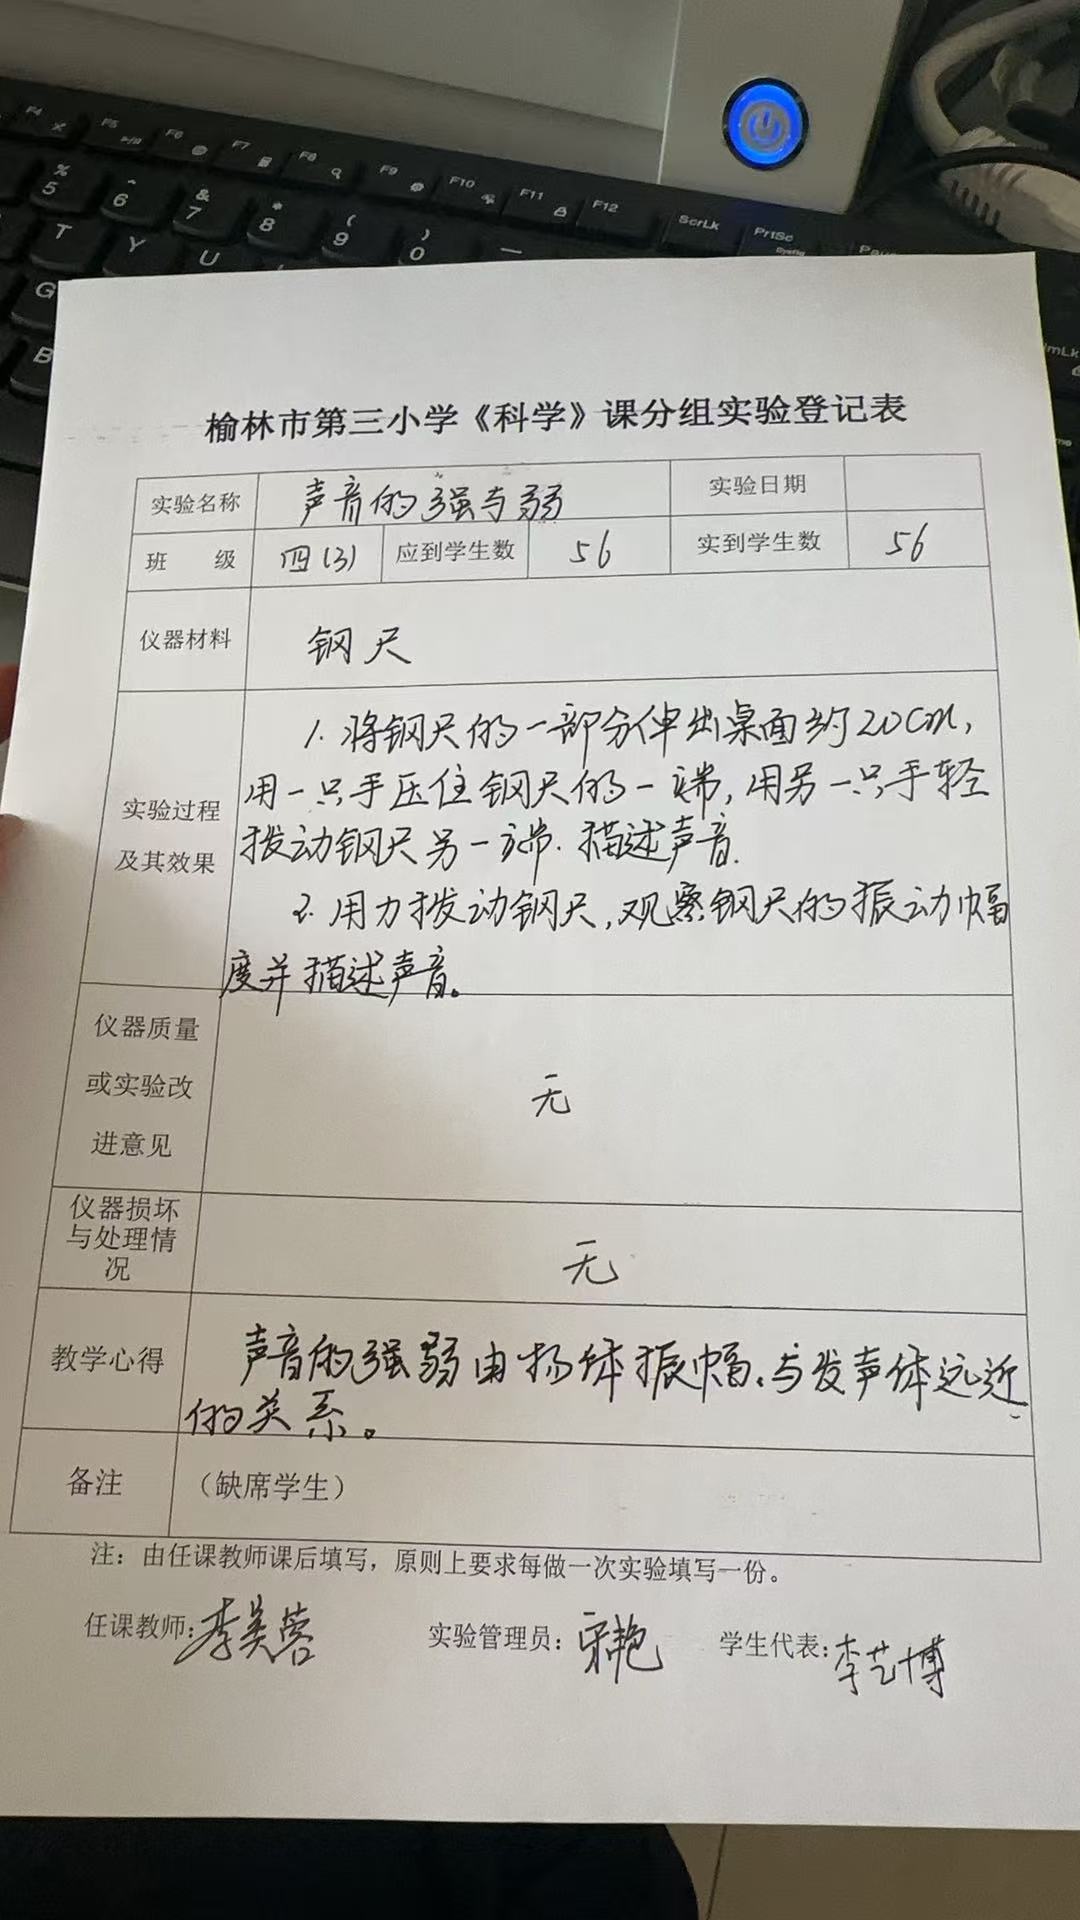 F4 F5 F6 F7 F8 F9 F10 F11 F12 ScrLk PrtSc
% 5 ^ 6 & 7 * 8 ( 9 ) 0
T Y U
G
B
榆林市第三小学《科学》课分组实验登记表
实验名称 声音的强与弱 实验日期
班 级 四(3) 应到学生数 56 实到学生数 56
仪器材料 钢尺
实验过程及其效果
1. 将钢尺的一部分伸出桌面约20cm,
用一只手压住钢尺的一端,用另一只手轻
拨动钢尺另一端.描述声音.
2. 用力拨动钢尺,观察钢尺的振动幅
度并描述声音。
仪器质量
或实验改
进意见
无
仪器损坏
与处理情
况
无
教学心得
声音的强弱由物体振幅、与发声体远近
的关系。
备注 (缺席学生)
注：由任课教师课后填写，原则上要求每做一次实验填写一份。
任课教师:李美蓉 实验管理员: 学生代表:李艺博